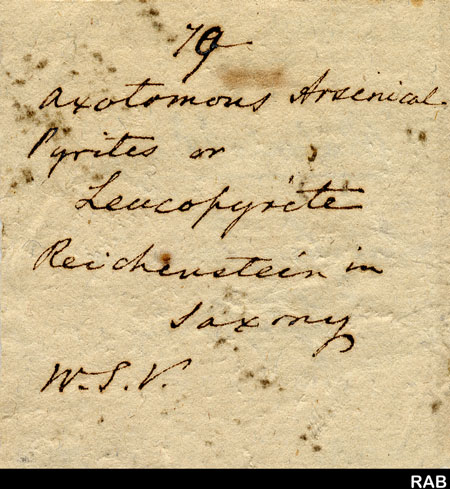 79
axotomous Arsenical
Pyrites or
Leucopyrite
Reichenstein in
Saxony
W.S.V.
RAB